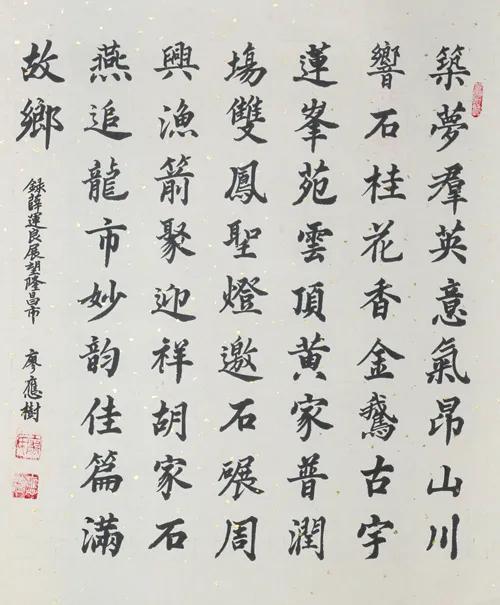 築夢羣英意氣昂山川
響石桂花香金鵝古宇
蓮峯苑雲頂黄家普潤
塲雙鳳聖燈邀石碾周
興漁箭聚迎祥胡家石
燕追龍市妙韵佳篇滿
故鄉
録薛運良展望隆昌市
廖應樹